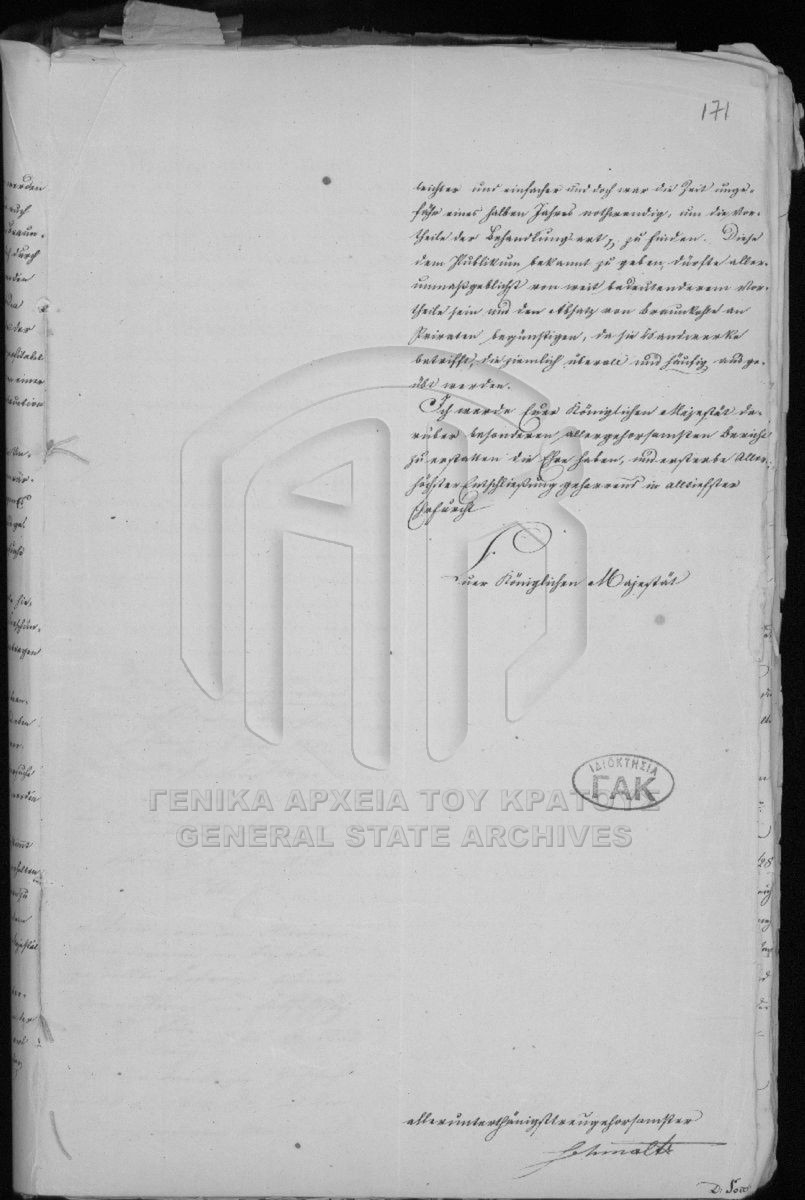 171
leichter und einfacher und doch war die Zeit unge-
fähr eines halben Jahres nothwendig, um die Vor-
theile der Behandlungsart zu finden. Diese
dem Publikum bekannt zu geben, dürfte aller-
unmaßgeblichst von weit bedeutenderem Vor-
theile sein und den Absatz von Braunkohle an
Privaten begünstigen, da sie Handwerke
betrifft, die ziemlich überall und häufig ausge-
übt werden.
Ich werde Euer Königlichen Majestät da-
rüber besonderen allergehorsamsten Bericht
zu erstatten die Ehre haben, und ersterbe Aller-
höchster Entschließung geharrend in alltiefster
Ehrfurcht
Euer Königlichen Majestät
ΙΔΙΟΚΤΗΣΙΑ
ΓΑΚ
ΓΕΝΙΚΑ ΑΡΧΕΙΑ ΤΟΥ ΚΡΑΤΟΥΣ
GENERAL STATE ARCHIVES
allerunterthänigsttreugehorsamster
Schmaltz